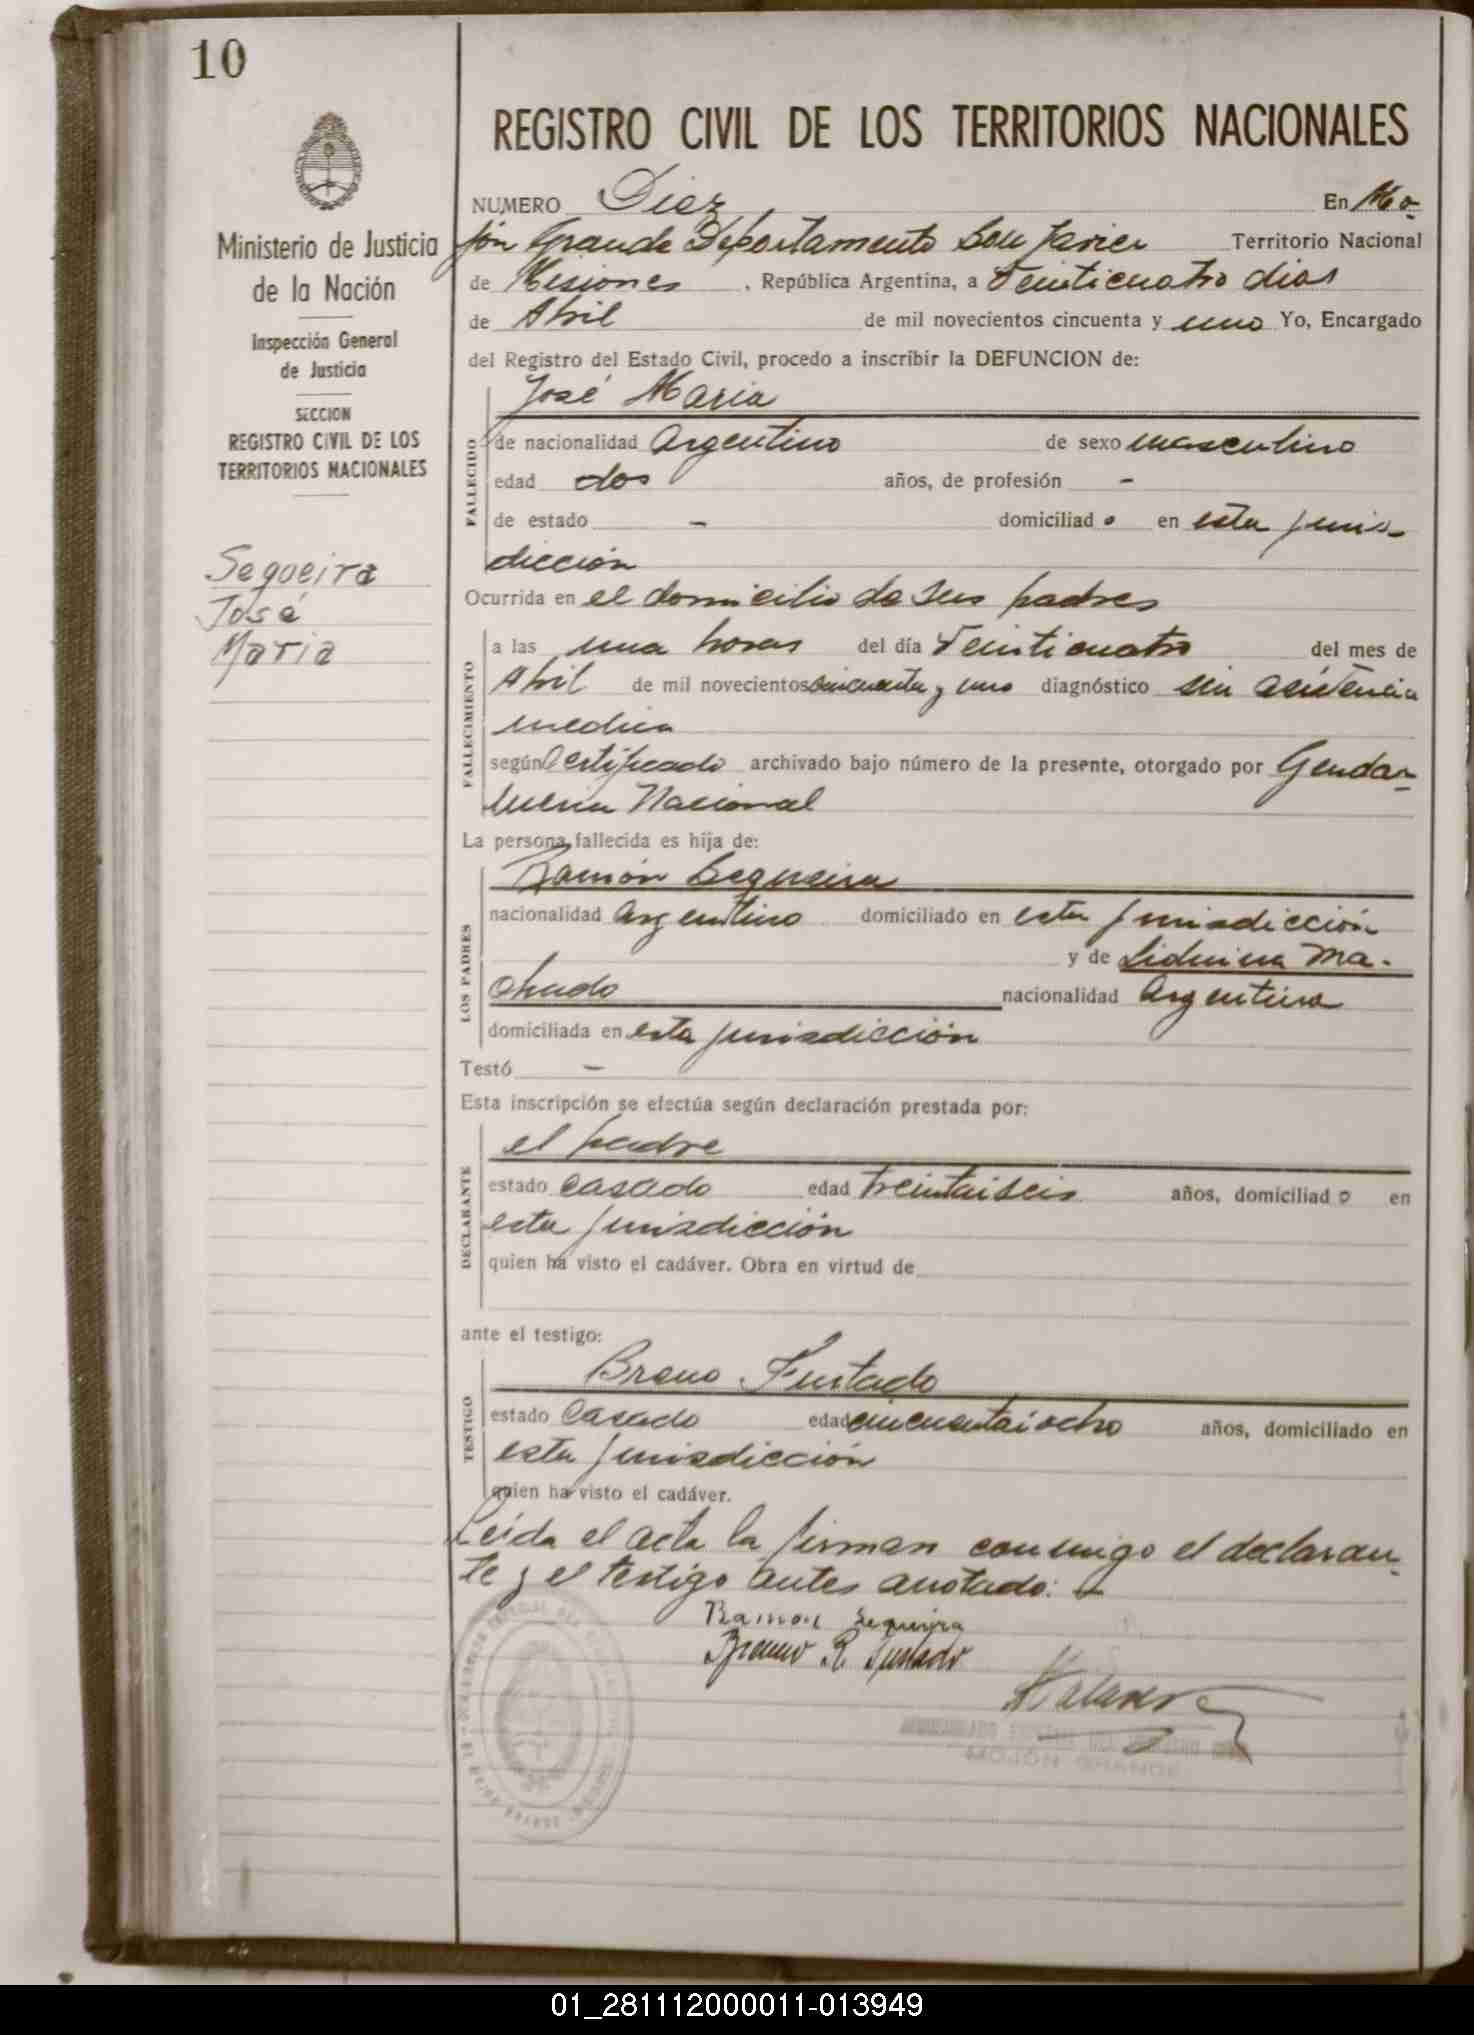 10
REGISTRO CIVIL DE LOS TERRITORIOS NACIONALES
Ministerio de Justicia
de la Nación
Inspección General
de Justicia
SECCION
REGISTRO CIVIL DE LOS
TERRITORIOS NACIONALES
Sequeira
José
Maria
NUMERO Diez En Mo-
jón Grande Departamento San Javier Territorio Nacional
de Misiones, República Argentina, a veinticuatro dias
de Abril de mil novecientos cincuenta y uno Yo, Encargado
del Registro del Estado Civil, procedo a inscribir la DEFUNCION de:
José Maria
FALLECIDO
de nacionalidad Argentino de sexo masculino
edad dos años, de profesión -
de estado - domiciliado en esta juris-
dicción
Ocurrida en el domicilio de sus padres
FALLECIMIENTO
a las una horas del día veinticuatro del mes de
Abril de mil novecientos cincuenta y uno diagnóstico sin asistencia
medica
según Certificado archivado bajo número de la presente, otorgado por Gendar-
meria Nacional
La persona fallecida es hija de:
LOS PADRES
Ramón Sequeira
nacionalidad Argentino domiciliado en esta jurisdicción
y de Liduina Ma-
chado nacionalidad Argentina
domiciliada en esta jurisdicción
Testó -
Esta inscripción se efectúa según declaración prestada por:
DECLARANTE
el padre
estado casado edad treintaiseis años, domiciliado en
esta jurisdicción
quien ha visto el cadáver. Obra en virtud de
ante el testigo:
TESTIGO
Breno Furtado
estado Casado edad cincuentaiocho años, domiciliado en
esta jurisdicción
quien ha visto el cadáver.
Leída el acta la firman conmigo el declaran-
te y el testigo antes anotado: -
Ramon Sequeira
R. Furtado
01_281112000011-013949